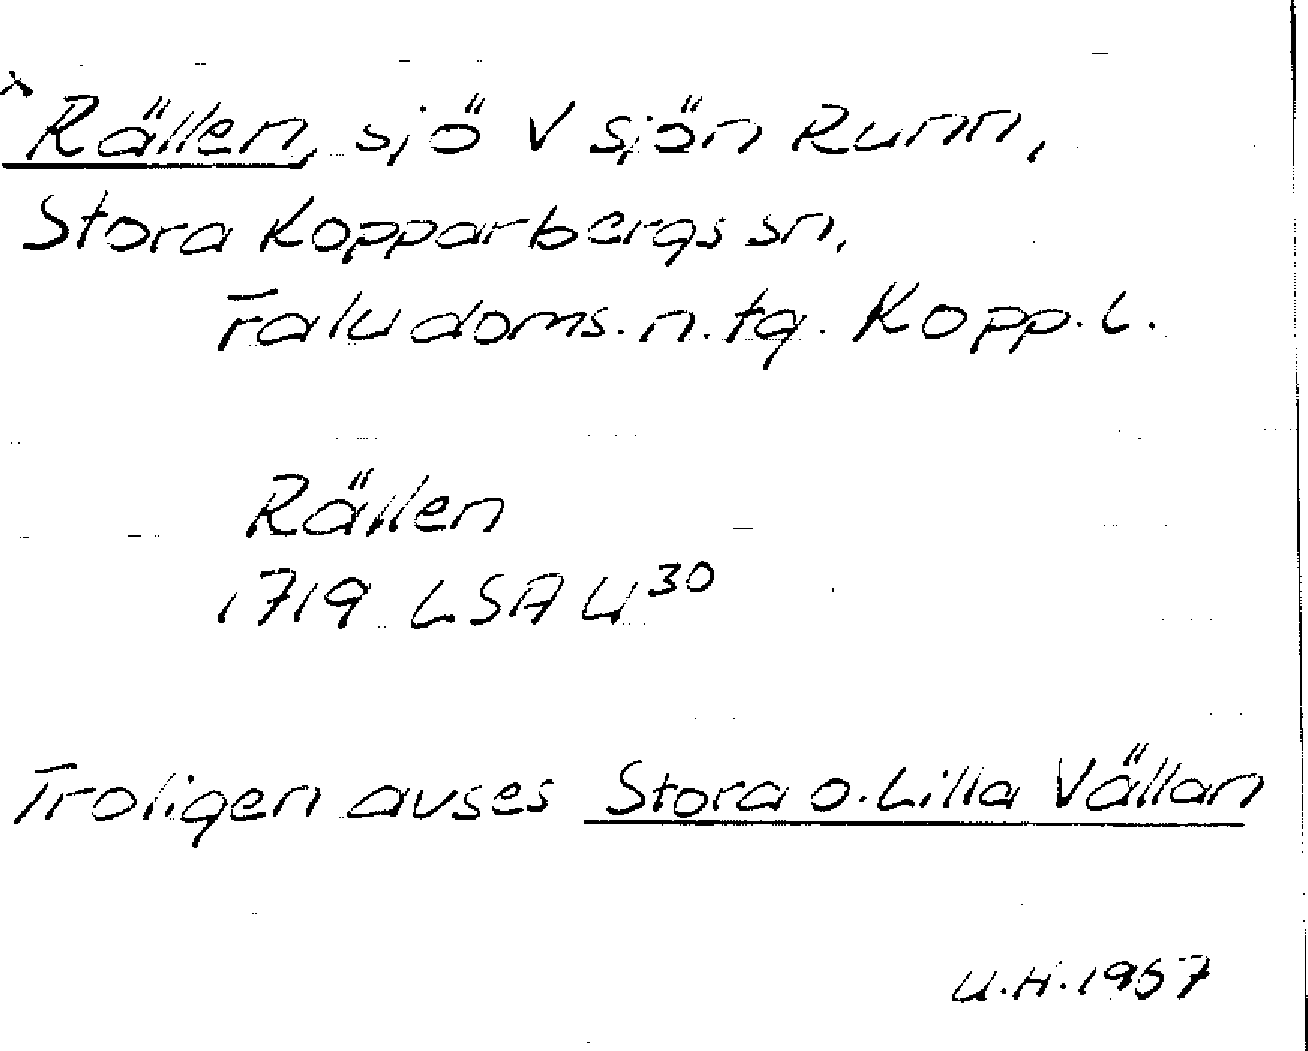 Rällen, sjö V sjön Runn,
Stora Kopparbergs sn,
Falu doms. n. tg. Kopp. l.
Rällen
1719 LSA U³⁰
Troligen avses Stora o. Lilla Vällan
U.H. 1967